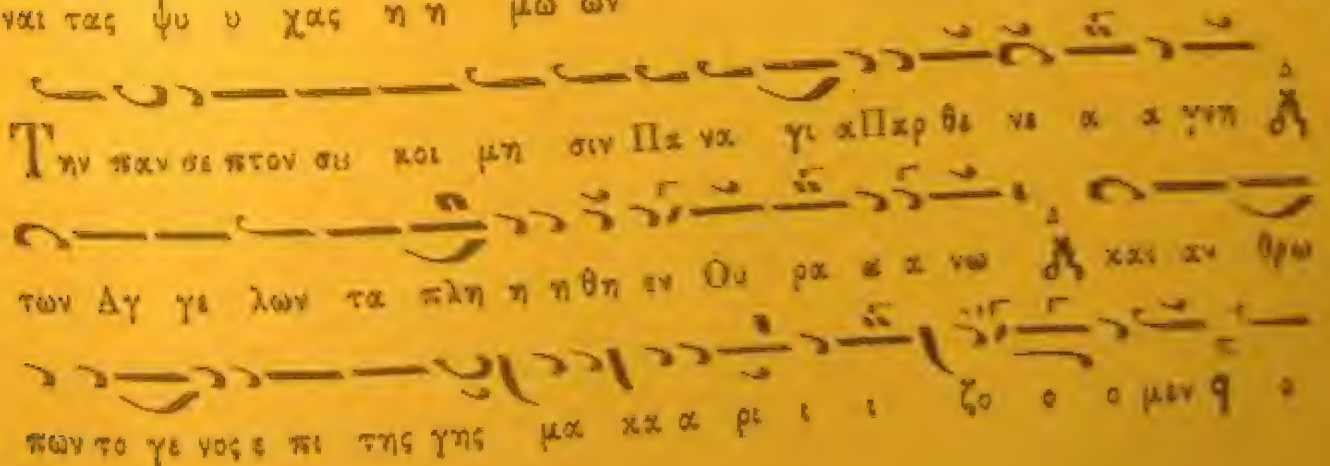 ναι τας ψυ υ χας η η μω ων
Την παν σε πτον σȣ κοι μη σιν Πα να γι α Παρ θε νε α α γνη
των Αγ γε λων τα πλη η η θη εν Ου ρα α α νω και αν θρω
πων το γε νος ε πι της γης μα κα α ρι ι ι ζο ο ο μεν ο